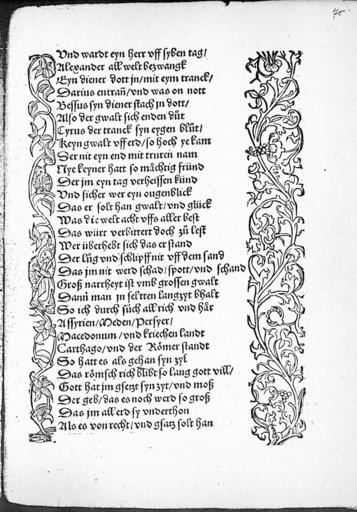 Vnd wardt eyn herr vff syben tag/
Alexander all welt bezwangk
Eyn diener dott jn/mit eym tranck/
Darius entran/vnd was on nott
Bessus syn diener stach jn dott/
Also der gwalt sich enden důt
Cyrus der tranck syn eygen blůt/
Keyn gwalt vff erd/so hoch ye kam
Der nit eyn end mit truren nam
Nye keyner hatt so mächtig fründ
Der jm eyn tag verheissen künd
Vnd sicher wer eyn ougenblick
Das er solt han gwalt/vnd glück
Was die welt acht vffs aller best
Das würt verbittert doch zů lest
Wer überhebt sich das er stand
Der lůg vnd schlipff nit vff dem sand
Das jm nit werd schad/spott/vnd schand
Groß narrheyt ist vmb grossen gwalt
Dann man jn seltten langzyt bhalt
So ich durch sůch all rich vnd här
Assyrien/Meden/Persyer/
Macedonum/vnd kriechen landt
Carthago/vnd der Römer standt
So hatt es als gehan syn zyl
Das römsch rich blibt so lang gott will/
Gott hat jm gsetzt syn zyt/vnd moß
Der geb/das es noch werd so groß
Das jm all erd sy vnderthon
Als es von recht/vnd gsatz solt han